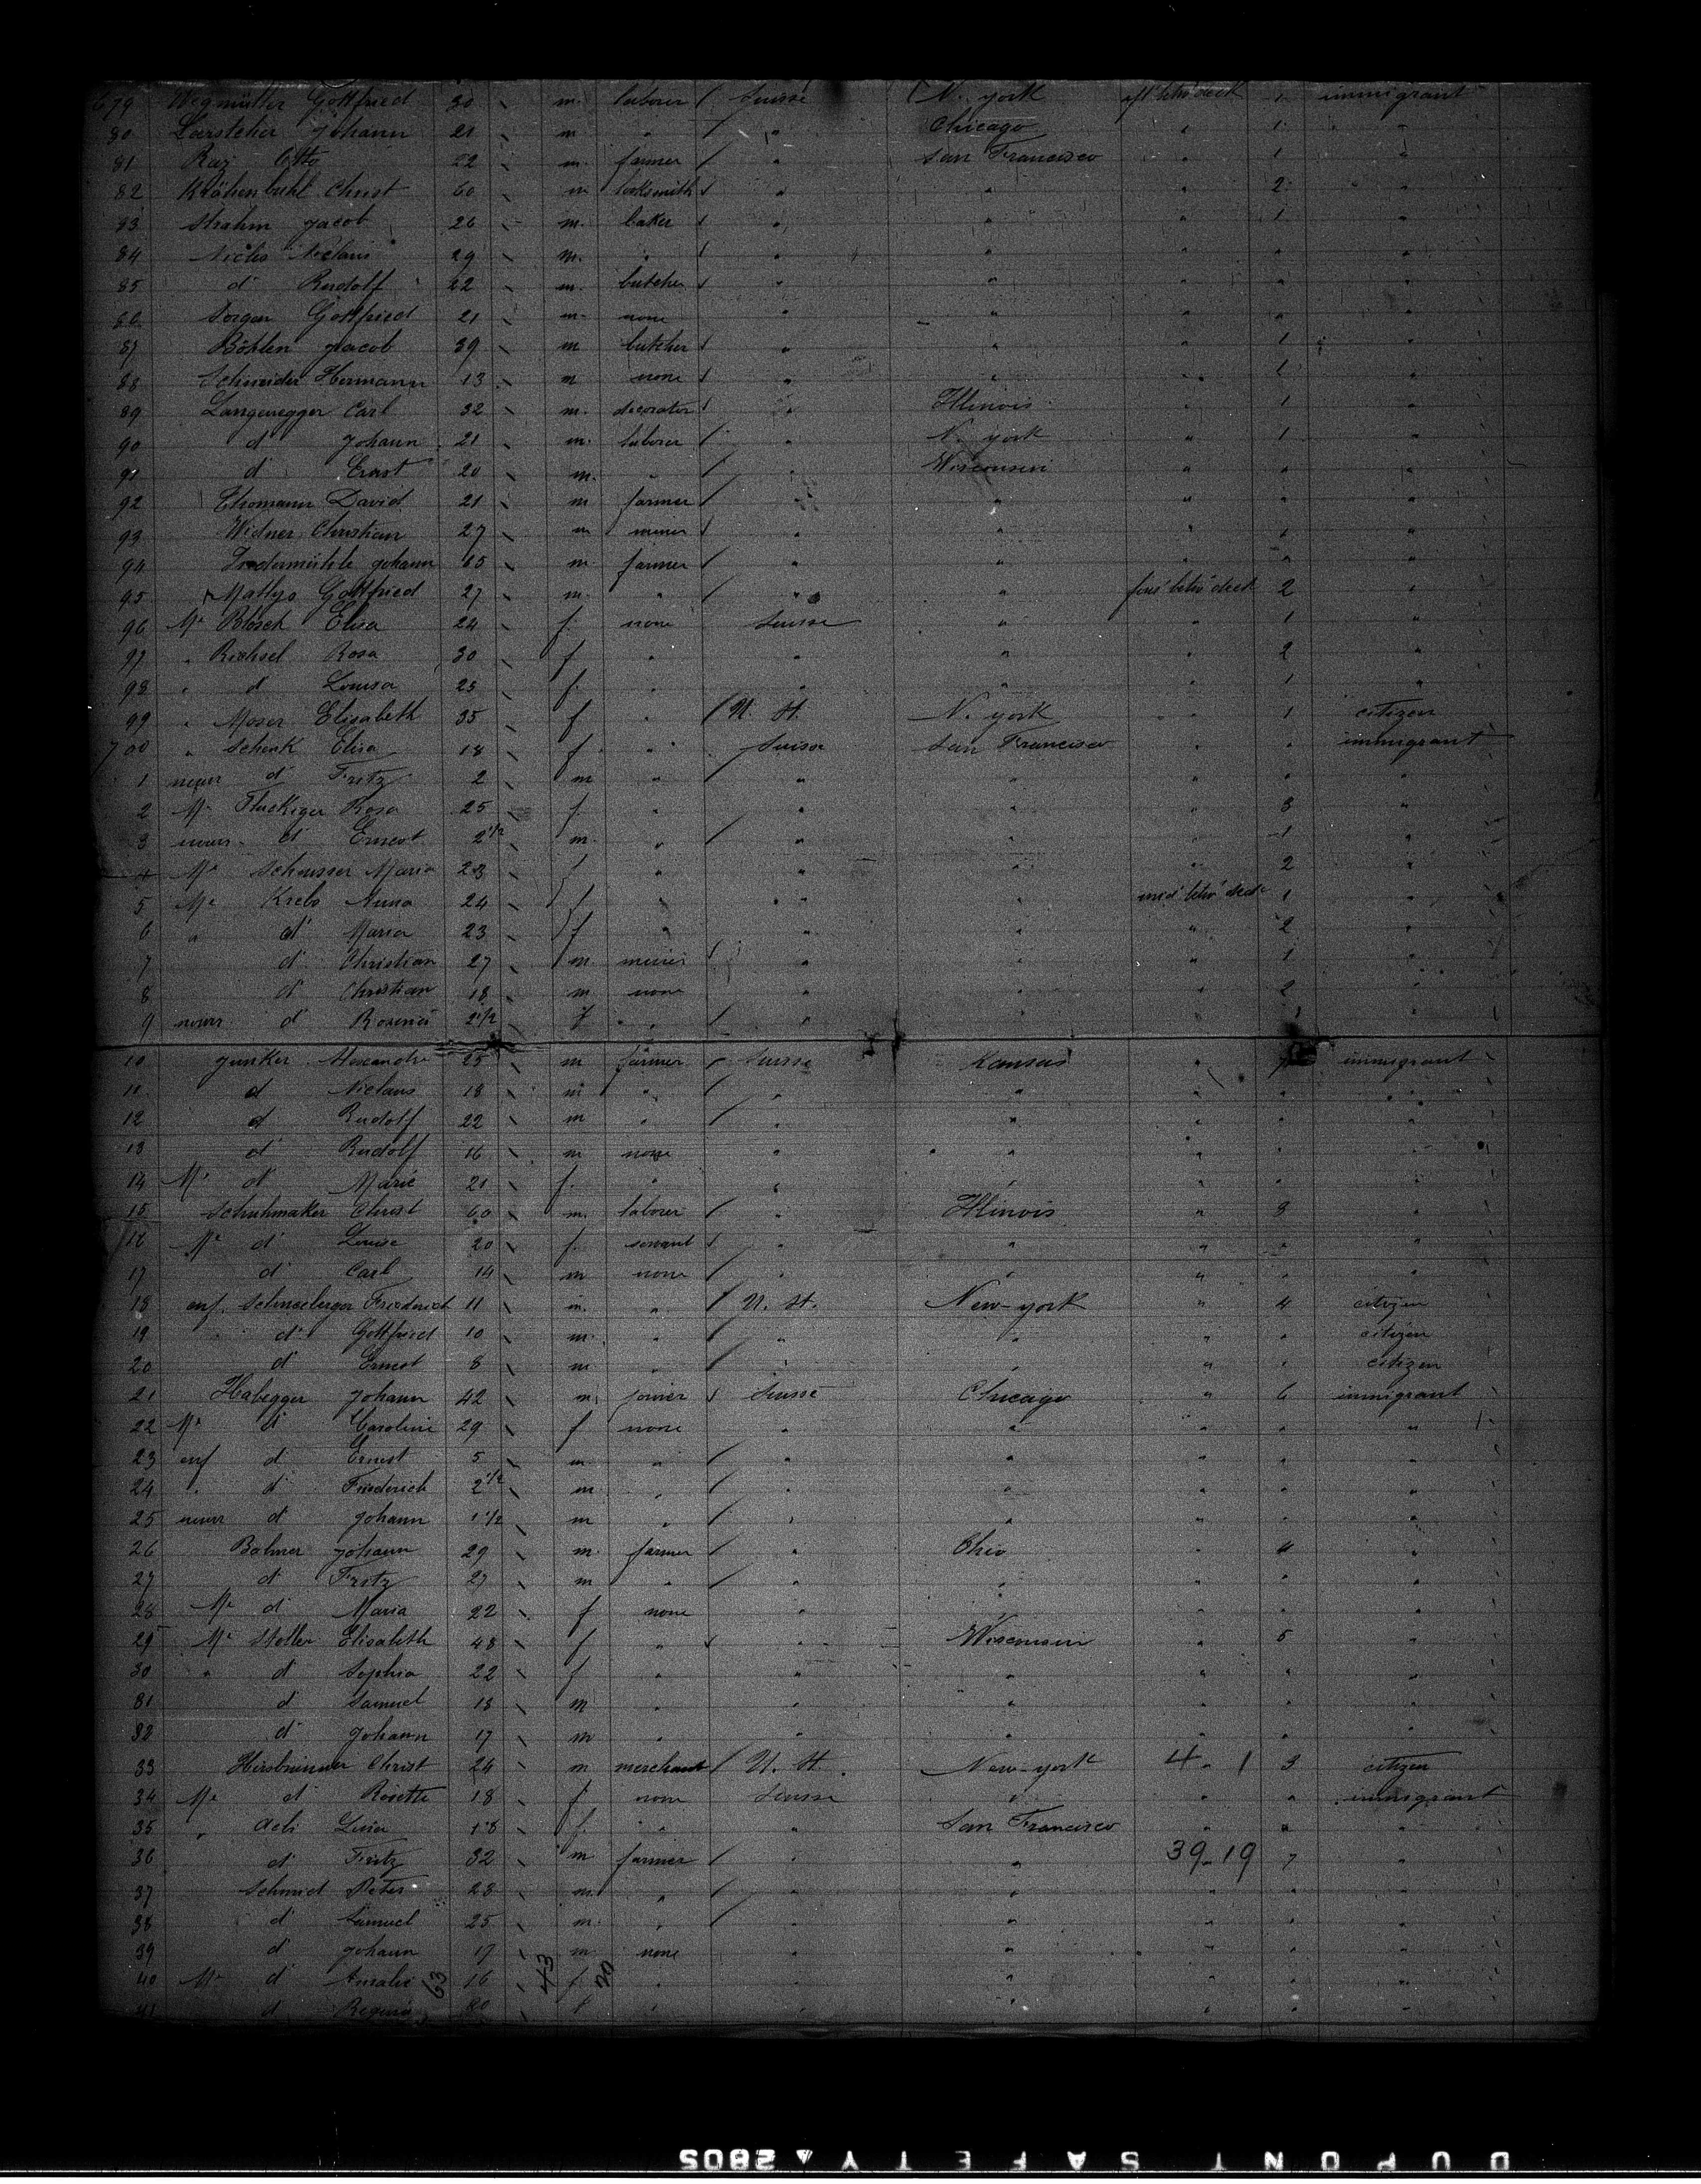 679 Wegmüller Gottfried 30 m. laborer Suisse N. york aft betw deck 1 immigrant
80 Johann 21 m " " Chicago " 1 "
81 Otto 22 m. farmer " San Francisco " 1 "
82 Krähenbuhl Christ 60 m locksmith " " " 2 "
83 Strahm Jacob 26 m. baker " " " 1 "
84 Niclaus 29 m. " " " " " "
85 d° Rudolf 22 m. butcher " " " " "
86 Gottfried 21 m. none " " " " "
87 Böhlen Jacob 39 m butcher " " " 1 "
88 Schneider Hermann 13 m none " " " 1 "
89 Langenegger Carl 32 m. decorator " Illinois " 1 "
90 d° Johann 21 m. laborer " N. york " 1 "
91 d° Ernst 20 m. " " Wisconsin " " "
92 Thomann David 21 m farmer " " " " "
93 Widner Christian 27 m miner " " " 1 "
94 Johann m. farmer " " " " "
95 Gottfried 27 m. " " " betw deck 2 "
96 Me Blösch Elisa 24 f. none Suisse " " 1 "
97 " Rosa 30 f " " " " 2 "
98 " d° Louisa 25 f. " " " " 1 "
99 " Moser Elisabeth 35 f " U. St. N. york " 1 citizen
700 " Schenk Elisa 18 f. " Suisse San Francisco " " immigrant
1 nourr d° Fritz 2 m " " " " " "
2 Me Fluckiger Rosa 25 f. " " " " 3 "
3 nourr. d° Ernest 2 1/2 m. " " " " 1 "
4 Me Maria 23 f " " " " 2 "
5 Me Krebs Anna 24 f " " " betw deck 1 "
6 " d° Maria 23 f " " " " 2 "
7 d° Christian 27 m. " " " 1 "
8 d° Christian 18 m none " " " 2 "
9 nourr d° Rosina 2 1/2 f " " " "
10 Junker Alexandre 25 m farmer Suisse Kansas " immigrant
11 d° Niclaus 18 m " " " " " "
12 d° Rudolf 22 m " " " " " "
13 d° Rudolf 16 m none " " " " "
14 Me d° Marie 21 f. " " " " " "
15 Schuhmaker Christ 60 m. laborer " Illinois " 3 "
16 Me d° Louise 20 f. servant " " " " "
17 d° Carl 14 m none " " " " "
18 enf. Schneeberger Friederich 11 m. " U. St. New-york " 4 citizen
19 d° Gottfried 10 m. " " " " " citizen
20 d° Ernest 8 m " " " " " citizen
21 Habegger Johann 42 m. Suisse Chicago " 6 immigrant
22 Me d° Caroline 29 f none " " " " "
23 enf d° Ernest 5 m " " " " " "
24 " d° Friederich 2 1/2 m " " " " " "
25 nourr d° Johann 1 1/2 m " " " " " "
26 Johann 29 m. farmer " Ohio " 4 "
27 d° Fritz 27 m " " " " " "
28 Me d° Maria 22 f none " " " " "
29 Me Stoller Elisabeth 48 f " " Wisconsin " 5 "
30 " d° Sophia 22 f " " " " " "
31 d° Samuel 18 m " " " " " "
32 d° Johann 17 m " " " " " "
33 Hirsbrunner Christ 24 m merchant U. St. New-york 4 - 1 3 citizen
34 Me d° Rosette 18 f none Suisse " " " immigrant
35 " Aebi 18 f. " " San Francisco " " "
36 d° Fritz 32 m farmer " " 39-19 7 "
37 Schmid Peter 28 m. " " " " " "
38 d° Samuel 25 m. " " " " " "
39 d° Johann 17 m none " " " " "
40 Me d° Amalie 16 f. " " " " " "
41 d° Regina f " " " " " "
63 43 20
DUPONT SAFETY 2805